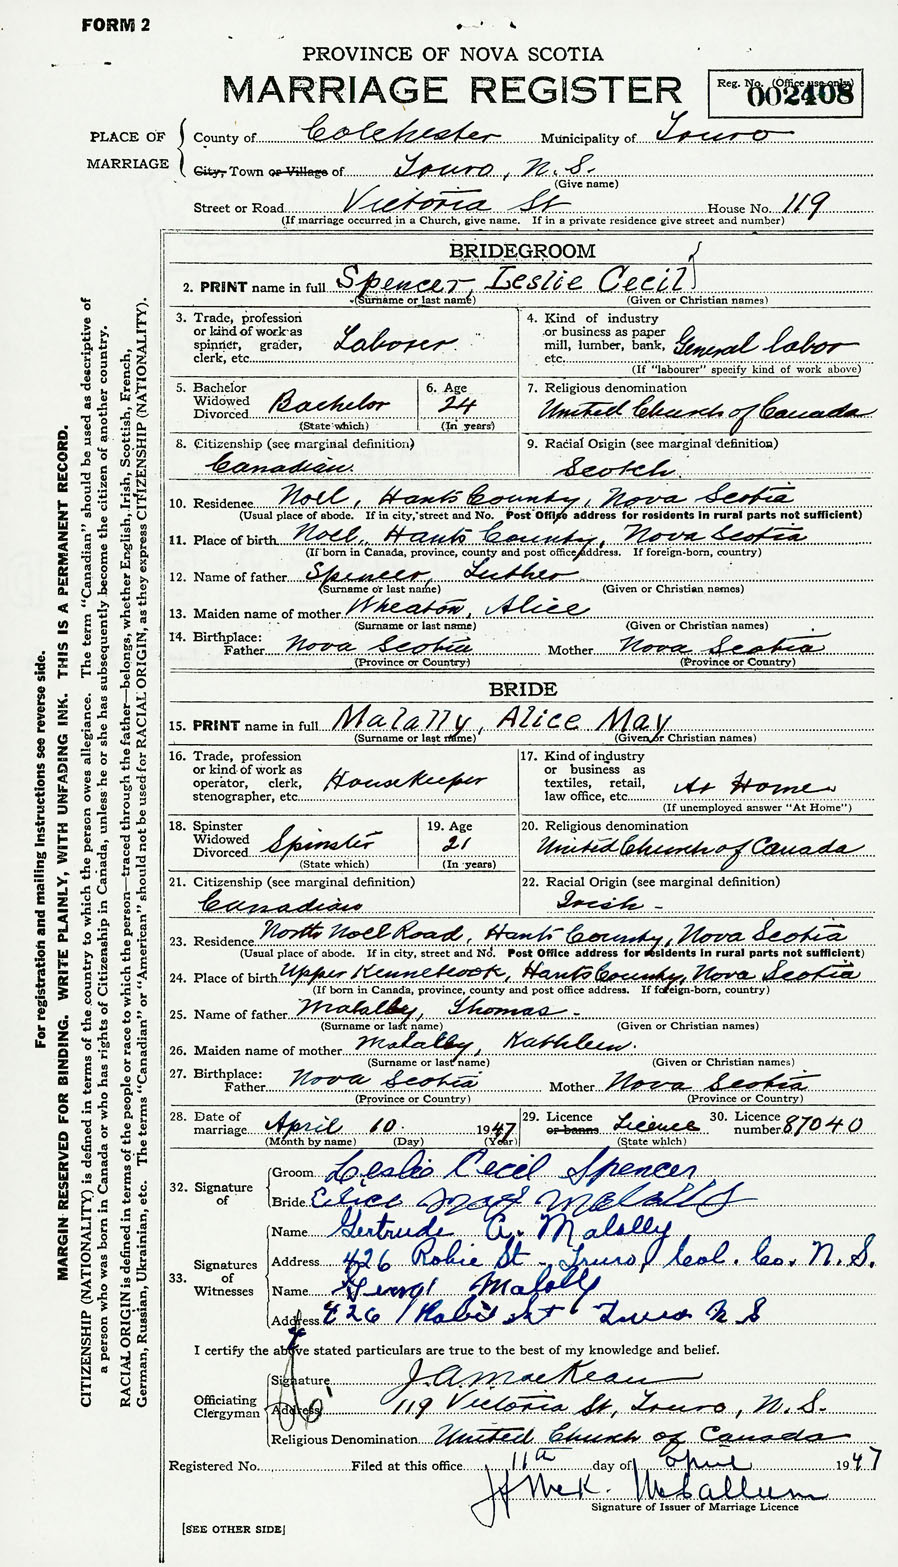 FORM 2
PROVINCE OF NOVA SCOTIA
MARRIAGE REGISTER
Reg. No. (Office use only)
002408
PLACE OF MARRIAGE
County of Colchester Municipality of Truro
City, Town or Village of Truro, N.S.
(Give name)
Street or Road Victoria St House No. 119
(If marriage occurred in a Church, give name. If in a private residence give street and number)
BRIDEGROOM
2. PRINT name in full Spencer, Leslie Cecil
(Surname or last name) (Given or Christian names)
3. Trade, profession or kind of work as spinner, grader, clerk, etc. Laborer.
4. Kind of industry or business as paper mill, lumber, bank, etc. General labor
(If "labourer" specify kind of work above)
5. Bachelor Widowed Divorced Bachelor
(State which)
6. Age 24
(In years)
7. Religious denomination
United Church of Canada
8. Citizenship (see marginal definition)
Canadian.
9. Racial Origin (see marginal definition)
Scotch.
10. Residence Noel, Hants County, Nova Scotia
(Usual place of abode. If in city, street and No. Post Office address for residents in rural parts not sufficient)
11. Place of birth Noel, Hants County, Nova Scotia
(If born in Canada, province, county and post office address. If foreign-born, country)
12. Name of father Spencer, Luther
(Surname or last name) (Given or Christian names)
13. Maiden name of mother Wheaton, Alice
(Surname or last name) (Given or Christian names)
14. Birthplace:
Father Nova Scotia Mother Nova Scotia
(Province or Country) (Province or Country)
BRIDE
15. PRINT name in full Malally, Alice May
(Surname or last name) (Given or Christian names)
16. Trade, profession or kind of work as operator, clerk, stenographer, etc. Housekeeper
17. Kind of industry or business as textiles, retail, law office, etc. At Home
(If unemployed answer "At Home")
18. Spinster Widowed Divorced Spinster
(State which)
19. Age 21
(In years)
20. Religious denomination
United Church of Canada
21. Citizenship (see marginal definition)
Canadian
22. Racial Origin (see marginal definition)
Irish -
23. Residence North Noel Road, Hants County, Nova Scotia
(Usual place of abode. If in city, street and No. Post Office address for residents in rural parts not sufficient)
24. Place of birth Upper Kennetcook, Hants County, Nova Scotia
(If born in Canada, province, county and post office address. If foreign-born, country)
25. Name of father Malally, Thomas -
(Surname or last name) (Given or Christian names)
26. Maiden name of mother Malally, Kathleen.
(Surname or last name) (Given or Christian names)
27. Birthplace:
Father Nova Scotia Mother Nova Scotia
(Province or Country) (Province or Country)
28. Date of marriage April 10. 1947
(Month by name) (Day) (Year)
29. Licence or banns Licence
(State which)
30. Licence number 87040
32. Signature of
Groom Leslie Cecil Spencer
Bride Alice May Malally
33. Signatures of Witnesses
Name Gertrude A. Malolly
Address 426 Robie St - Truro, Col. Co. N.S.
Name Malolly
Address 426 Robie St Truro N S
I certify the above stated particulars are true to the best of my knowledge and belief.
Officiating Clergyman
Signature J. A. MacKean
Address 119 Victoria St, Truro, N.S.
Religious Denomination United Church of Canada
Registered No. Filed at this office 11th day of April 1947
McCallum
Signature of Issuer of Marriage Licence
[SEE OTHER SIDE]
For registration and mailing instructions see reverse side.
MARGIN RESERVED FOR BINDING. WRITE PLAINLY, WITH UNFADING INK. THIS IS A PERMANENT RECORD.
CITIZENSHIP (NATIONALITY) is defined in terms of the country to which the person owes allegiance. The term "Canadian" should be used as descriptive of
a person who was born in Canada or who has rights of Citizenship in Canada, unless he or she has subsequently become the citizen of another country.
RACIAL ORIGIN is defined in terms of the people or race to which the person—traced through the father—belongs, whether English, Irish, Scottish, French,
German, Russian, Ukrainian, etc. The terms "Canadian" or "American" should not be used for RACIAL ORIGIN, as they express CITIZENSHIP (NATIONALITY).